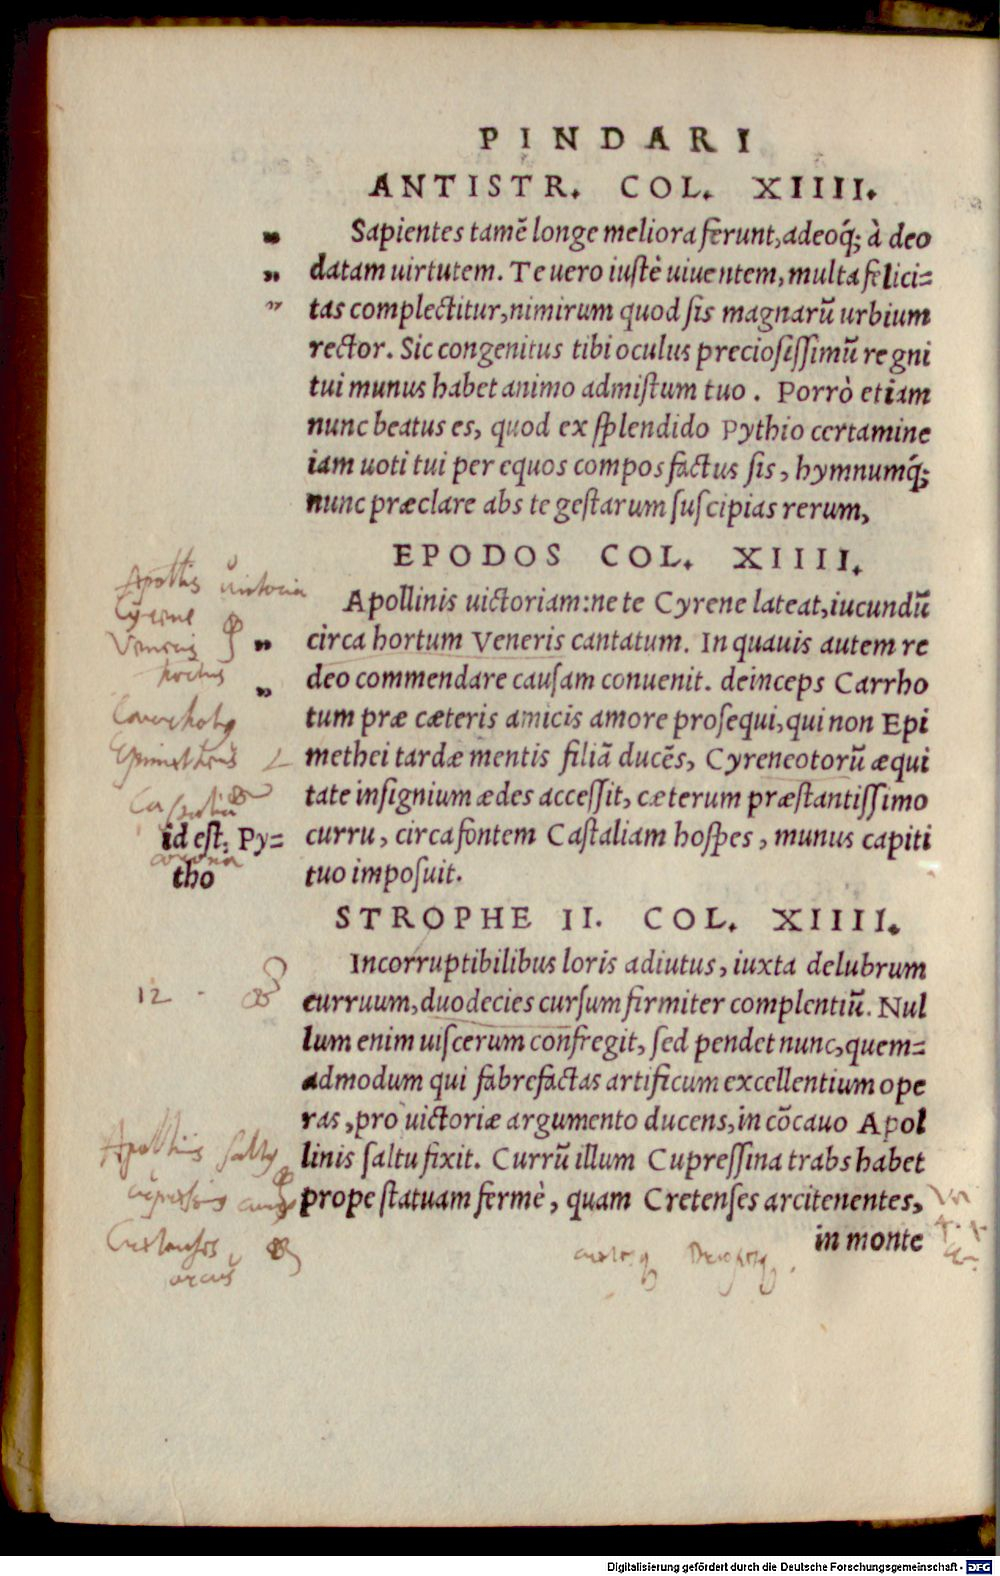 PINDARI
ANTISTR. COL. XIIII.
Sapientes tamē longe meliora ferunt, adeoq́; à deo
datam uirtutem. Te uero iustè uiuentem, multa felici=
tas complectitur, nimirum quod sis magnarū urbium
rector. Sic congenitus tibi oculus preciosissimū regni
tui munus habet animo admistum tuo. Porrò etiam
nunc beatus es, quod ex splendido Pythio certamine
iam uoti tui per equos compos factus sis, hymnumq́;
nunc præclare abs te gestarum suscipias rerum,
EPODOS COL. XIIII.
Apollinis uictoriam: ne te Cyrene lateat, iucundū
circa hortum Veneris cantatum. In quauis autem re
deo commendare causam conuenit. deinceps Carrho
tum præ cæteris amicis amore prosequi, qui non Epi
methei tardæ mentis filiā ducēs, Cyreneotorū æqui
tate insignium ædes accessit, cæterum præstantissimo
curru, circa fontem Castaliam hospes, munus capiti
tuo imposuit.
Apollis uictoria
Cyrene
Veneris
hortus
Epimetheus
Castalia
id est: Py=
corona
tho
STROPHE II. COL. XIIII.
Incorruptibilibus loris adiutus, iuxta delubrum
curruum, duodecies cursum firmiter complentiū. Nul
lum enim uiscerum confregit, sed pendet nunc, quem=
admodum qui fabrefactas artificum excellentium ope
ras, pro uictoriæ argumento ducens, in cōcauo Apol
linis saltu fixit. Currū illum Cupressina trabs habet
prope statuam fermè, quam Cretenses arcitenentes,
in monte
12
Apollinis saltus
Cretenses
arcus
Digitalisierung gefördert durch die Deutsche Forschungsgemeinschaft - DFG